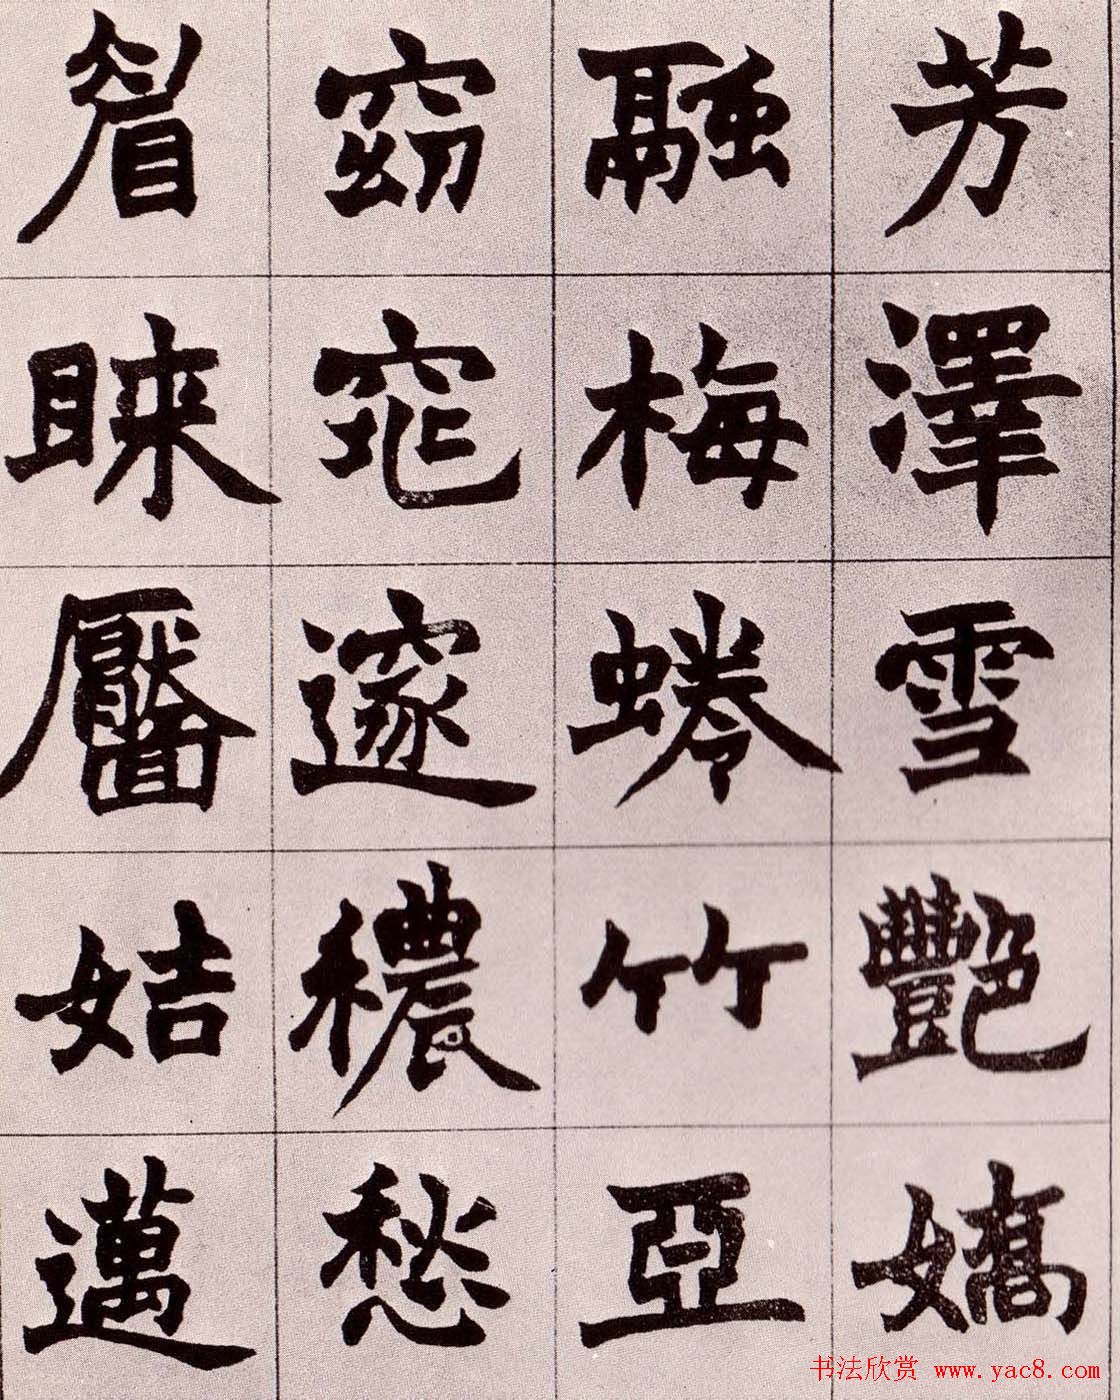 芳澤雪艷嬌
融梅蜷竹亞
窈窕邃穠愁
眉睞靨姞邁
书法欣赏 www.yac8.com